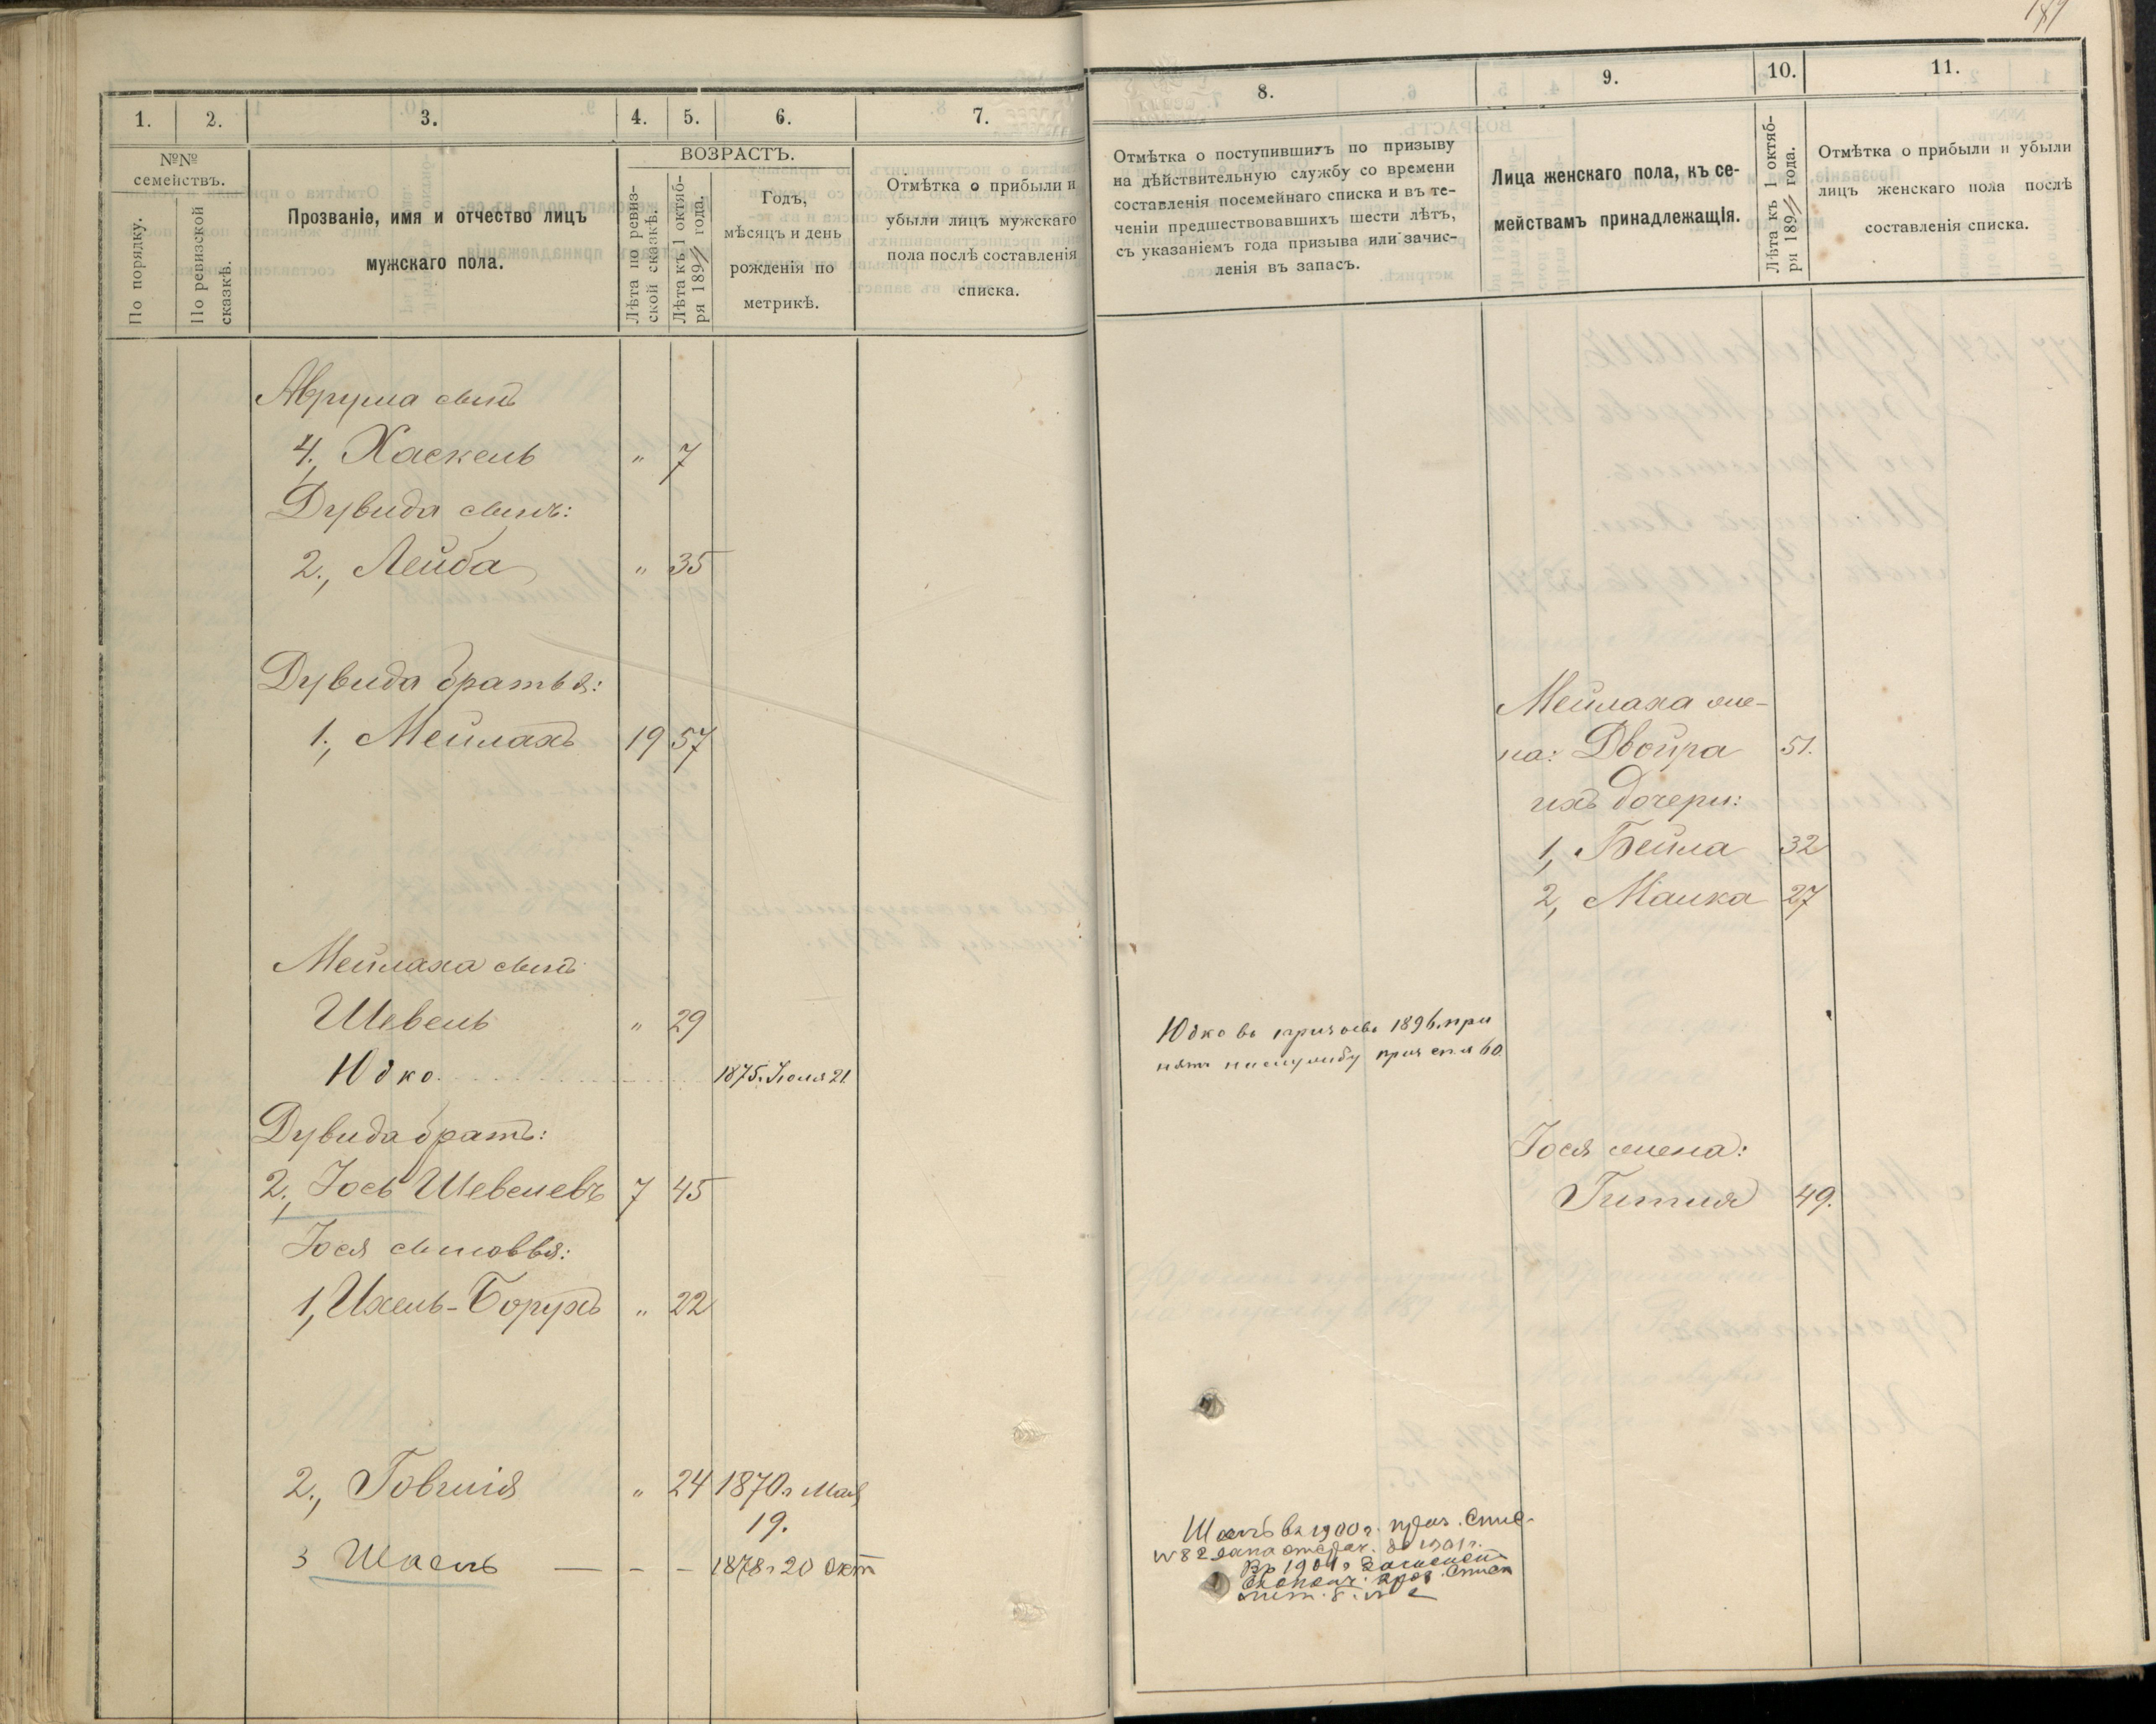 1.
2.
3.
4.
5.
6.
7.
№№
семействъ.
По порядку.
По ревизской
сказкѣ.
Прозваніе, имя и отчество лицъ
мужскаго пола.
ВОЗРАСТЪ.
Лѣта по ревиз-
ской сказкѣ.
Лѣта къ 1 октяб-
ря 189 года.
Годъ,
мѣсяцъ и день
рожденія по
метрикѣ.
Отмѣтка о прибыли и
убыли лицъ мужскаго
пола послѣ составленія
списка.
Аврума сынъ
4., Хаскель " 7
Дувида сынъ:
2., Лейба " 35
Дувида братья:
1., Мейлахъ 19 57
Мейлаха сынъ
Шевель " 29
Юдко 1875. Іюля 21
Дувида братъ:
2., Іось Шевелевъ 7 45
Іося сыновья:
1, Ихель-Борухъ " 22
2., Говшія " 24 1870 г Мая
19.
3 Шаель — - - 1878 г 20 Окт
8.
9.
10.
11.
Отмѣтка о поступившихъ по призыву
на дѣйствительную службу со времени
составленія посемейнаго списка и въ те-
ченіи предшествовавшихъ шести лѣтъ,
съ указаніемъ года призыва или зачис-
ленія въ запасъ.
Лица женскаго пола, къ се-
мействамъ принадлежащія.
Лѣта къ 1 октяб-
ря 189 года.
Отмѣтка о прибыли и убыли
лицъ женскаго пола послѣ
составленія списка.
Мейлаха же-
на: Двойра 51.
ихъ дочери:
1, Бейла 32
2, Малка 27
Юдко въ призывъ 1896. при
нятъ на службу 60.
Іося жена:
Гитля 49.
въ 1900 г. приз. Спис.
№ 82 до 1901 г.
Въ 1901 г.
приз. Списк